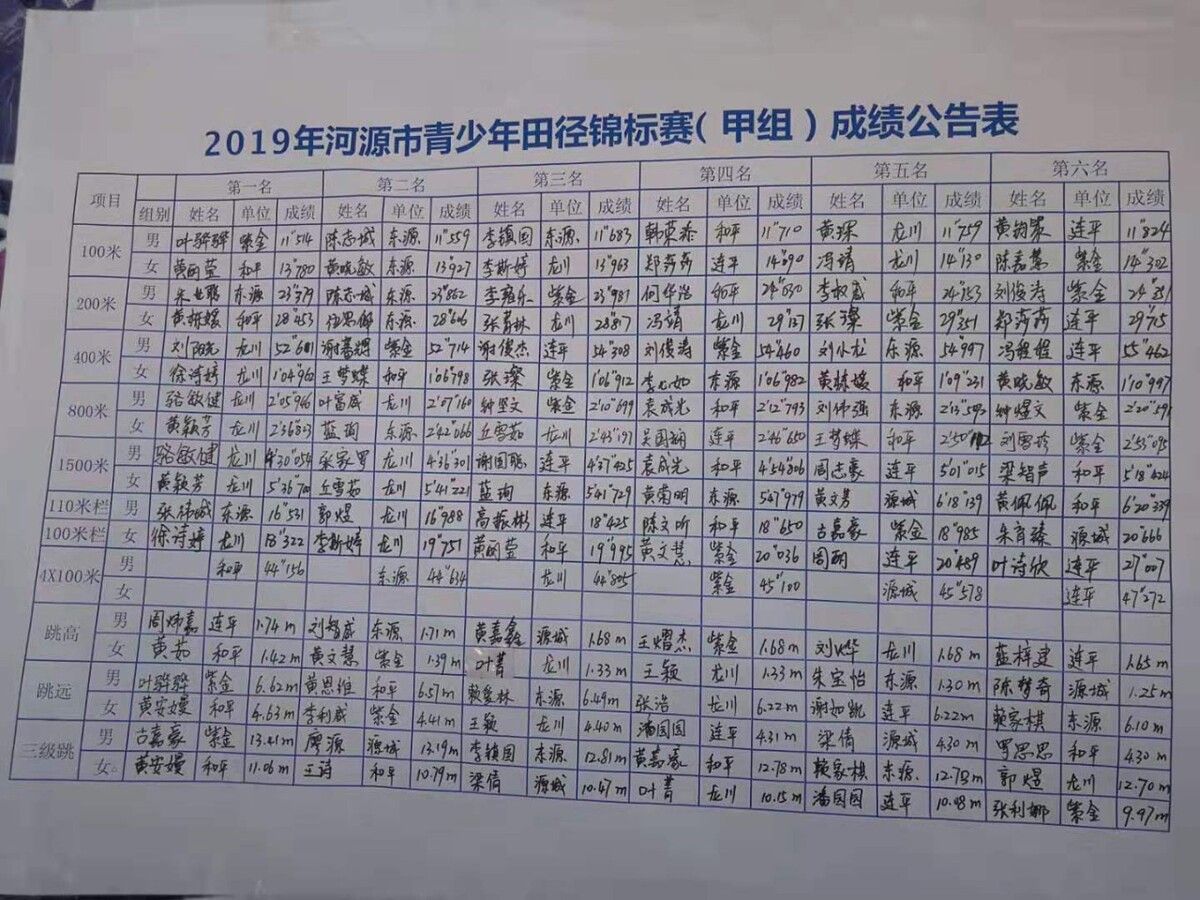 2019年河源市青少年田径锦标赛(甲组)成绩公告表
项目 第一名 第二名 第三名 第四名 第五名 第六名
组别 姓名 单位 成绩 姓名 单位 成绩 姓名 单位 成绩 姓名 单位 成绩 姓名 单位 成绩 姓名 单位 成绩
100米 男 叶骅骅 紫金 11"514 陈志城 东源 11"559 李镇国 东源 11"683 韩荣添 和平 11"710 黄琛 龙川 11"759 黄钧 连平 11"824
女 黄雨萱 和平 13"780 黄晓敏 东源 13"927 李斯婷 龙川 13"963 郑莎莎 连平 14"090 冯靖 龙川 14"130 陈嘉慧 紫金 14"302
200米 男 东源 23"379 陈志城 东源 23"862 紫金 23"981 何华浩 和平 24"030 李权威 和平 24"153 刘俊涛 紫金
女 黄林媛 和平 28"453 东源 28"606 龙川 28"817 冯靖 龙川 29"137 张璨 紫金 29"351 郑莎莎 连平 29"715
400米 男 刘阳光 龙川 紫金 52"714 谢俊杰 连平 54"308 刘俊涛 紫金 54"460 刘小龙 东源 54"997 冯程程 连平 55"462
女 徐诗婷 龙川 1'04"962 王梦蝶 和平 1'06"798 张璨 紫金 1'06"912 李心如 东源 1'06"982 黄林媛 和平 1'09"231 黄晓敏 东源 1'10"997
800米 男 骆敏健 龙川 2'05"966 叶富威 龙川 2'07"160 钟坚文 紫金 2'10"699 袁成光 和平 2'12"793 刘伟强 东源 2'13"593 钟煜文 紫金 2'20"591
女 黄颖芳 龙川 2'36"823 蓝珣 东源 2'42"066 丘雪茹 龙川 2'43"197 吴国炳 连平 2'46"650 王梦蝶 和平 刘雪珍 紫金 2'53"095
1500米 男 骆敏健 龙川 4'30"054 张家罗 龙川 4'36"301 谢国聪 连平 4'37"425 袁成光 和平 4'54"806 周志豪 连平 5'01"015 梁智声 和平 5'18"424
女 黄颖芳 龙川 5'36"700 丘雪茹 龙川 5'41"221 蓝珣 东源 5'41"729 黄南明 东源 5'47"979 黄文芳 源城 6'18"139 黄佩佩 和平 6'20"339
110米栏 男 张伟城 东源 16"531 郭煜 龙川 16"988 高振彬 连平 18"425 陈文听 和平 18"650 古嘉豪 紫金 18"985 朱育臻 源城 20"666
100米栏 徐诗婷 龙川 18"322 李斯婷 龙川 19"751 黄雨萱 和平 19"995 黄文慧 紫金 20"036 周丽 连平 20"489 叶诗欣 连平 27"007
4X100米 男 和平 44"156 东源 44"634 龙川 44"805 紫金 45"100 源城 45"578 连平 47"272
女
跳高 男 周炜嘉 连平 1.74m 刘智威 东源 1.71m 黄嘉鑫 源城 1.68m 王熠杰 紫金 1.68m 刘以烨 龙川 1.68m 蓝梓建 连平 1.65m
女 黄茹 和平 1.42m 黄文慧 紫金 1.39m 叶菁 龙川 1.33m 王颖 龙川 1.33m 朱宝怡 东源 1.30m 陈梦奇 源城 1.25m
跳远 男 叶骅骅 紫金 6.62m 黄思维 和平 6.57m 赖俊林 东源 6.49m 张浩 龙川 6.22m 谢如凯 连平 6.22m 赖家棋 东源 6.10m
女 黄安嫚 和平 4.63m 李利威 紫金 4.41m 王颖 龙川 4.40m 潘园园 连平 4.31m 梁倩 源城 4.30m 罗思思 和平 4.30m
三级跳 男 古嘉豪 紫金 13.41m 廖源 源城 13.19m 李镇国 东源 12.81m 黄嘉豪 和平 12.78m 赖家棋 东源 12.75m 郭煜 龙川 12.70m
女 黄安嫚 和平 11.06m 王诗 和平 10.79m 梁倩 源城 10.47m 叶菁 龙川 10.15m 潘园园 连平 10.08m 张利娜 紫金 9.97m